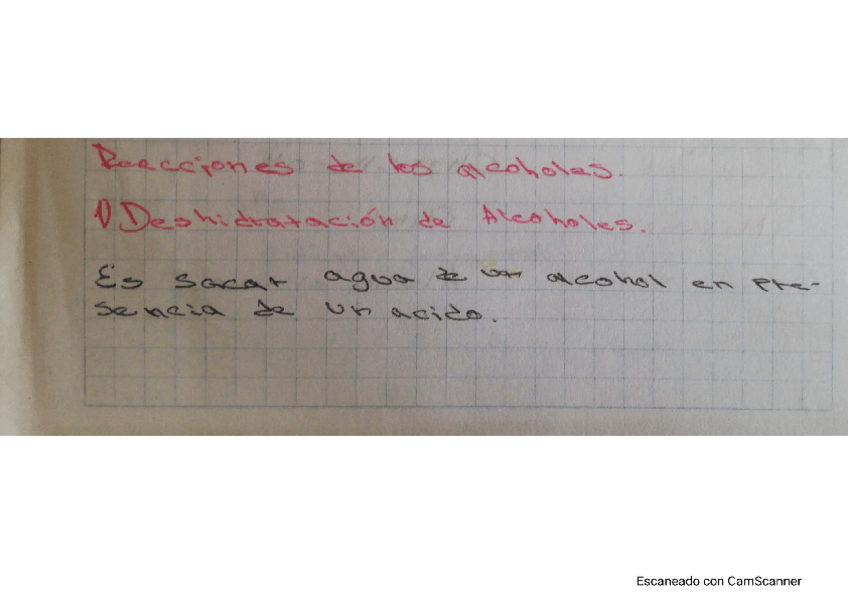 Reacciones de los alcoholes.
1) Deshidratación de Alcoholes.
Es sacar agua de un alcohol en pre-
sencia de un acido.
Escaneado con CamScanner